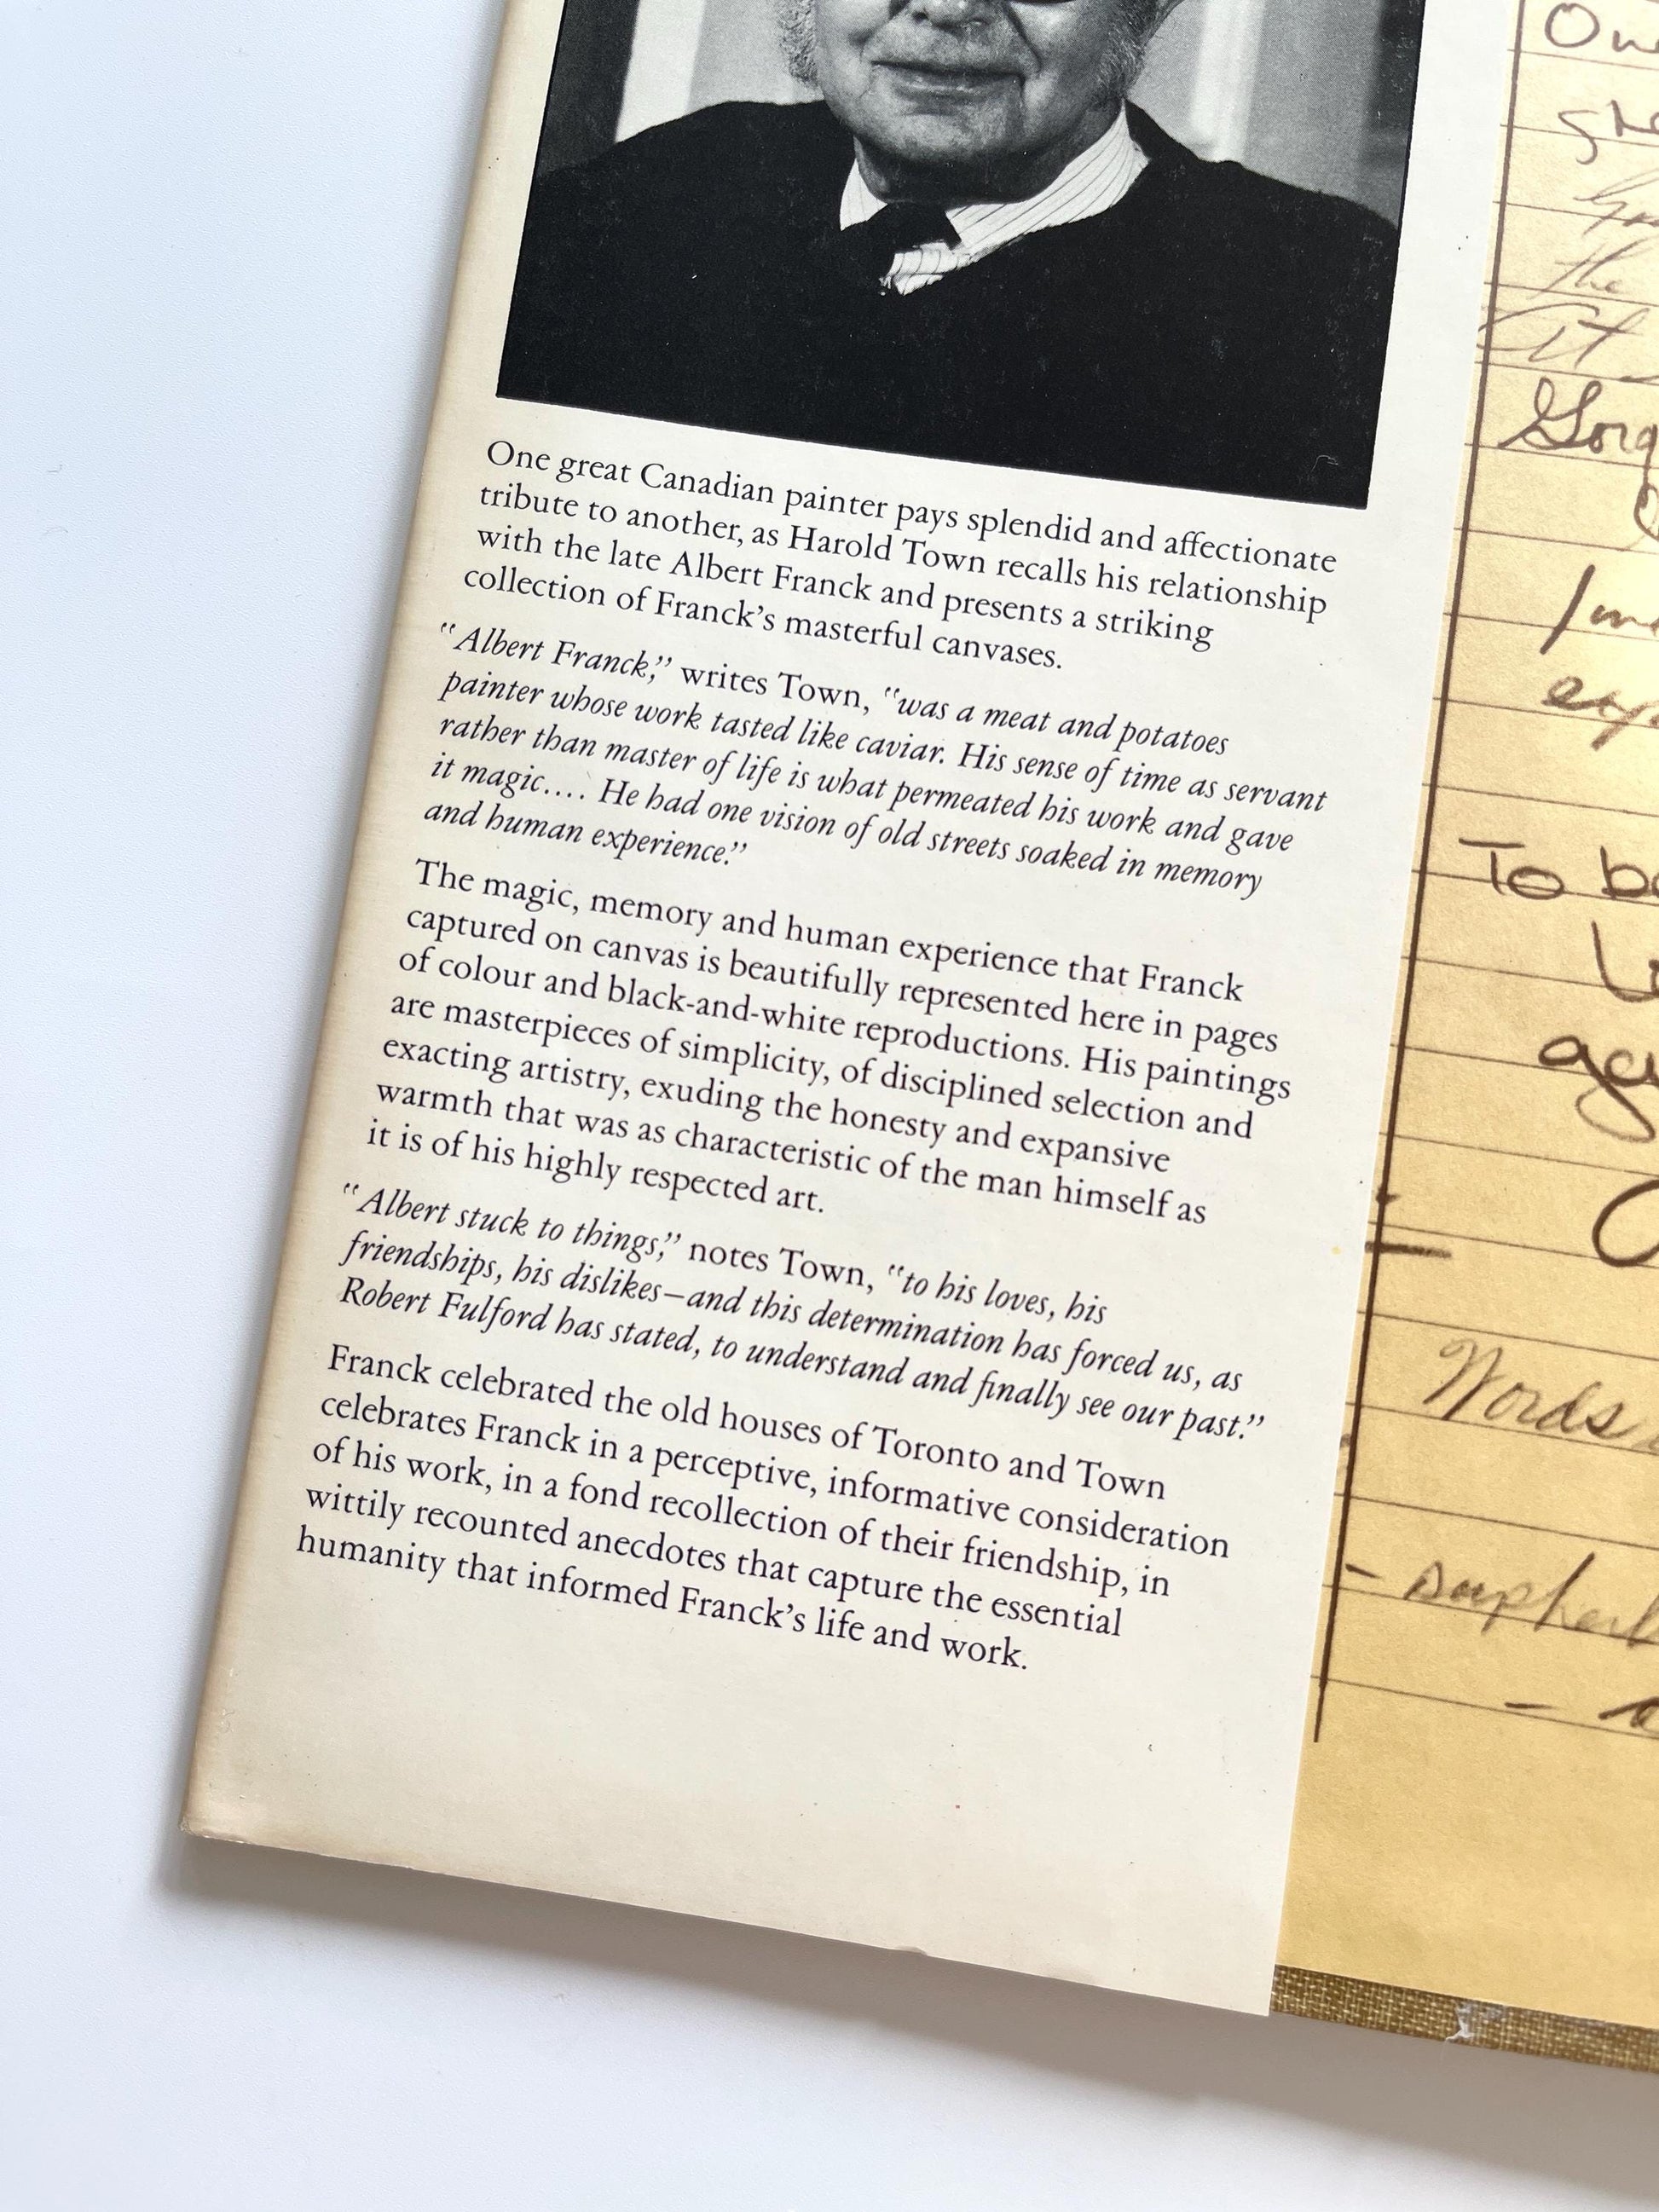 One great Canadian painter pays splendid and affectionate
tribute to another, as Harold Town recalls his relationship
with the late Albert Franck and presents a striking
collection of Franck’s masterful canvases.
“Albert Franck,” writes Town, “was a meat and potatoes
painter whose work tasted like caviar. His sense of time as servant
rather than master of life is what permeated his work and gave
it magic.... He had one vision of old streets soaked in memory
and human experience.”
The magic, memory and human experience that Franck
captured on canvas is beautifully represented here in pages
of colour and black-and-white reproductions. His paintings
are masterpieces of simplicity, of disciplined selection and
exacting artistry, exuding the honesty and expansive
warmth that was as characteristic of the man himself as
it is of his highly respected art.
“Albert stuck to things,” notes Town, “to his loves, his
friendships, his dislikes—and this determination has forced us, as
Robert Fulford has stated, to understand and finally see our past.”
Franck celebrated the old houses of Toronto and Town
celebrates Franck in a perceptive, informative consideration
of his work, in a fond recollection of their friendship, in
wittily recounted anecdotes that capture the essential
humanity that informed Franck’s life and work.
the
To
Words